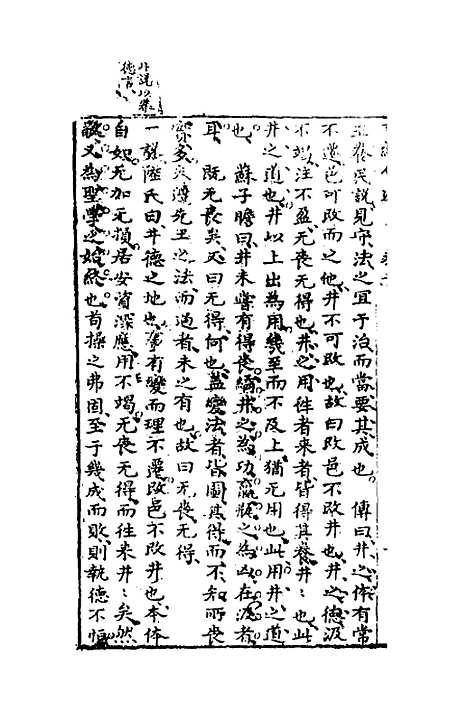 卦說以養
德言
至養民說見守法之宜于治而當要其成也　傳曰井之體有常
不遷邑可改而之他井不可改也故曰改邑不改井也井之德汲
不竭注不盈无喪无得也井之用往者來者皆得其養井井也此
井之道也井以上出為用幾至而不及上猶无用也此用井之道
也　蘇子瞻曰井未嘗有得喪繘井之為功羸瓶之為凶在汲者
耳　既无喪矣又曰无得何也蓋變法者皆圖其得而不知所喪
實多矣遵先王之法而過者未之有也故曰无喪无得
一張陸氏曰井德之地也事有變而理不遷改邑不改井也本体
自如无加无損居安資深應用不竭无喪无得而往来井井矣然
敬又為聖學之始終也苟操之弗固至于幾成而敗則執德不恒